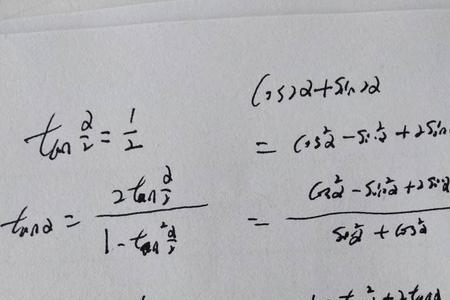 tan α/2 = 1/2
tanα = 2tan α/2 / 1 - tan² α/2
cos2α + sin2α
= cos²α - sin²α + 2sin
= cos²α - sin²α + 2sin / sin²α + cos²α